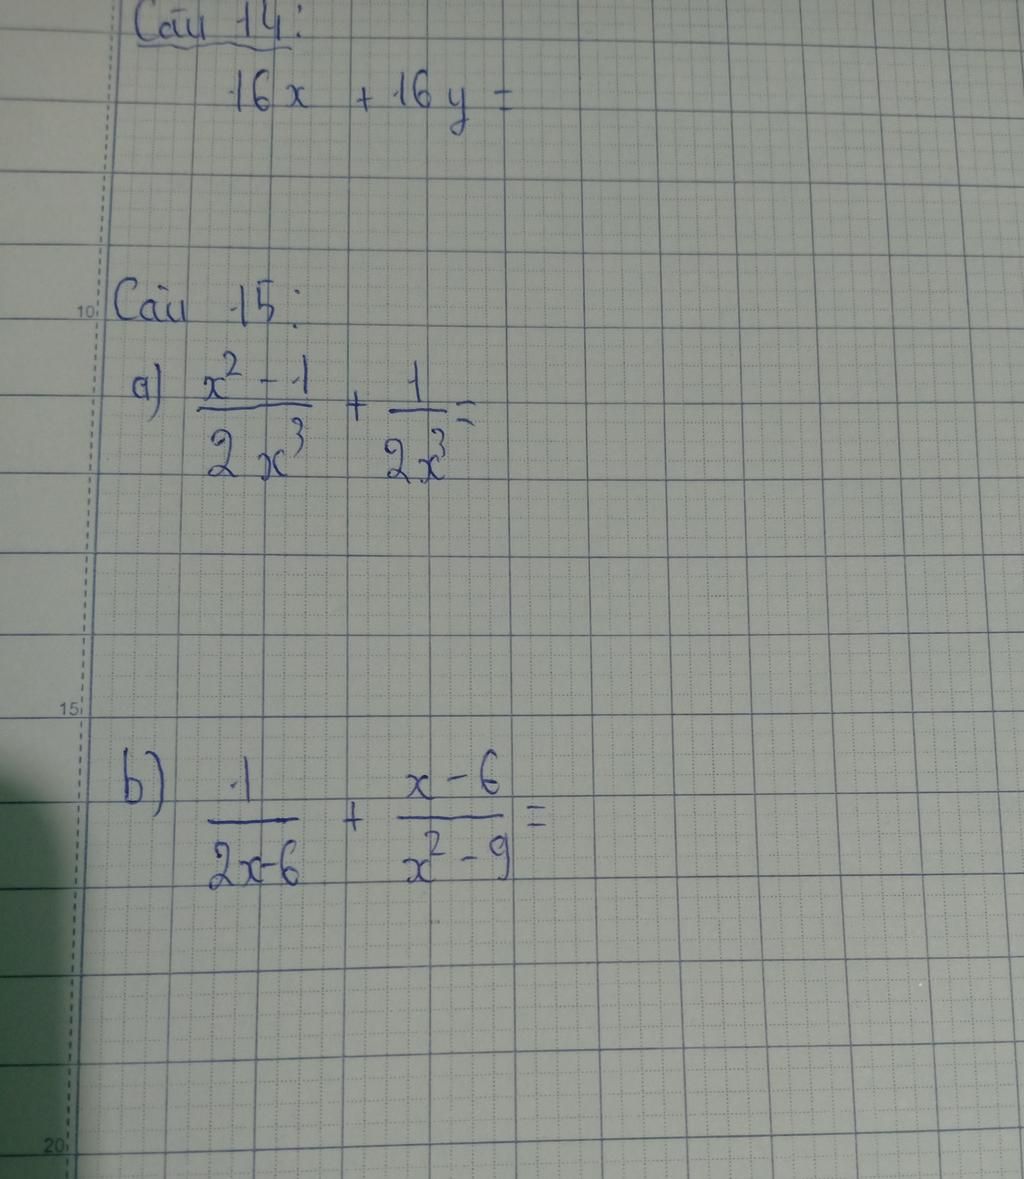 Câu 14:
16x + 16y =
10
Câu 15:
a) \frac{x^2 - 1}{2x^3} + \frac{1}{2x^3} =
15
b) \frac{1}{2x-6} + \frac{x-6}{x^2-9} =
20